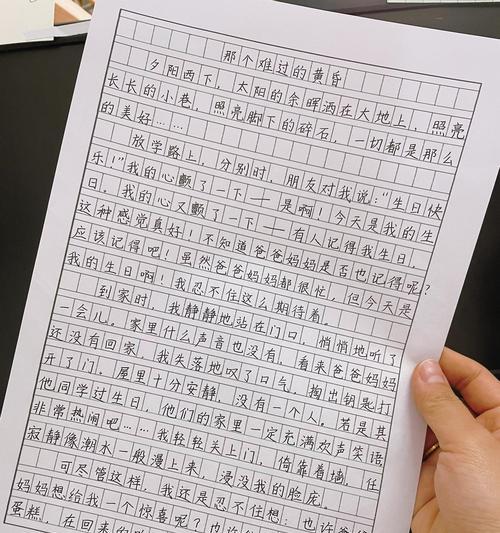 那个难过的黄昏
夕阳西下，太阳的余晖洒在大地上，照亮
长长的小巷，照亮脚下的碎石，一切都是那么
的美好……
放学路上，分别时，朋友对我说："生日快
乐！"我的心颤了一下——是啊！今天是我的生
日。我的心又颤了一下——有人记得我生日，
这种感觉真好！不知道爸爸妈妈是否也记得呢？
应该记得吧！虽然爸爸妈妈都很忙，但今天是
我的生日啊！我忍不住这么期待着。
到家时，我静静地站在门口，悄悄地听了
一会儿。家里什么声音也没有，看来爸爸妈妈
还没有回家，我失落地叹了口气，掏出钥匙打
开了门。屋里十分安静，没有一个人。若是其
他同学过生日，他们的家里一定充满欢声笑语，
非常热闹吧……我轻轻关上门，倚靠着墙，任
寂静像潮水一般漫上来，浸没我的脸庞。
可尽管这样，我还是忍不住想：也许爸爸
妈妈想给我一个惊喜呢？也许
蛋糕，在回来的